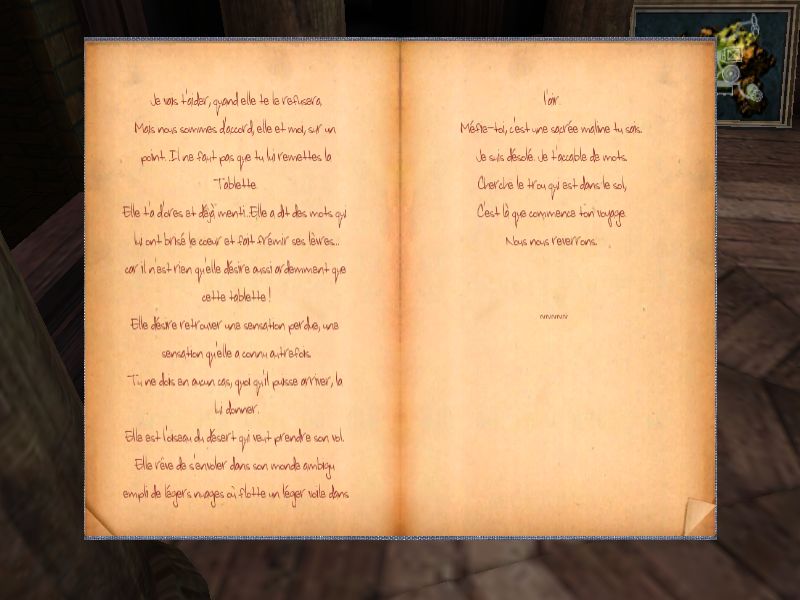 Je vais t'aider, quand elle te le refusera.
Mais nous sommes d'accord, elle et moi, sur un
point. Il ne faut pas que tu lui remettes la
Tablette.
Elle t'a d'ores et déjà menti. Elle a dit des mots qui
lui ont brisé le coeur et fait frémir ses lèvres...
car il n'est rien qu'elle désire aussi ardemment que
cette tablette !
Elle désire retrouver une sensation perdue, une
sensation qu'elle a connu autrefois.
Tu ne dois en aucun cas, quoi qu'il puisse arriver, la
lui donner.
Elle est l'oiseau du désert qui veut prendre son vol.
Elle rêve de s'envoler dans son monde ambigu
empli de légers nuages où flotte un léger voile dans
l'air.
Méfie-toi, c'est une sacrée maline tu sais.
Je suis désolé. Je t'accable de mots.
Cherche le trou qui est dans le sol,
C'est là que commence ton voyage.
Nous nous reverrons.